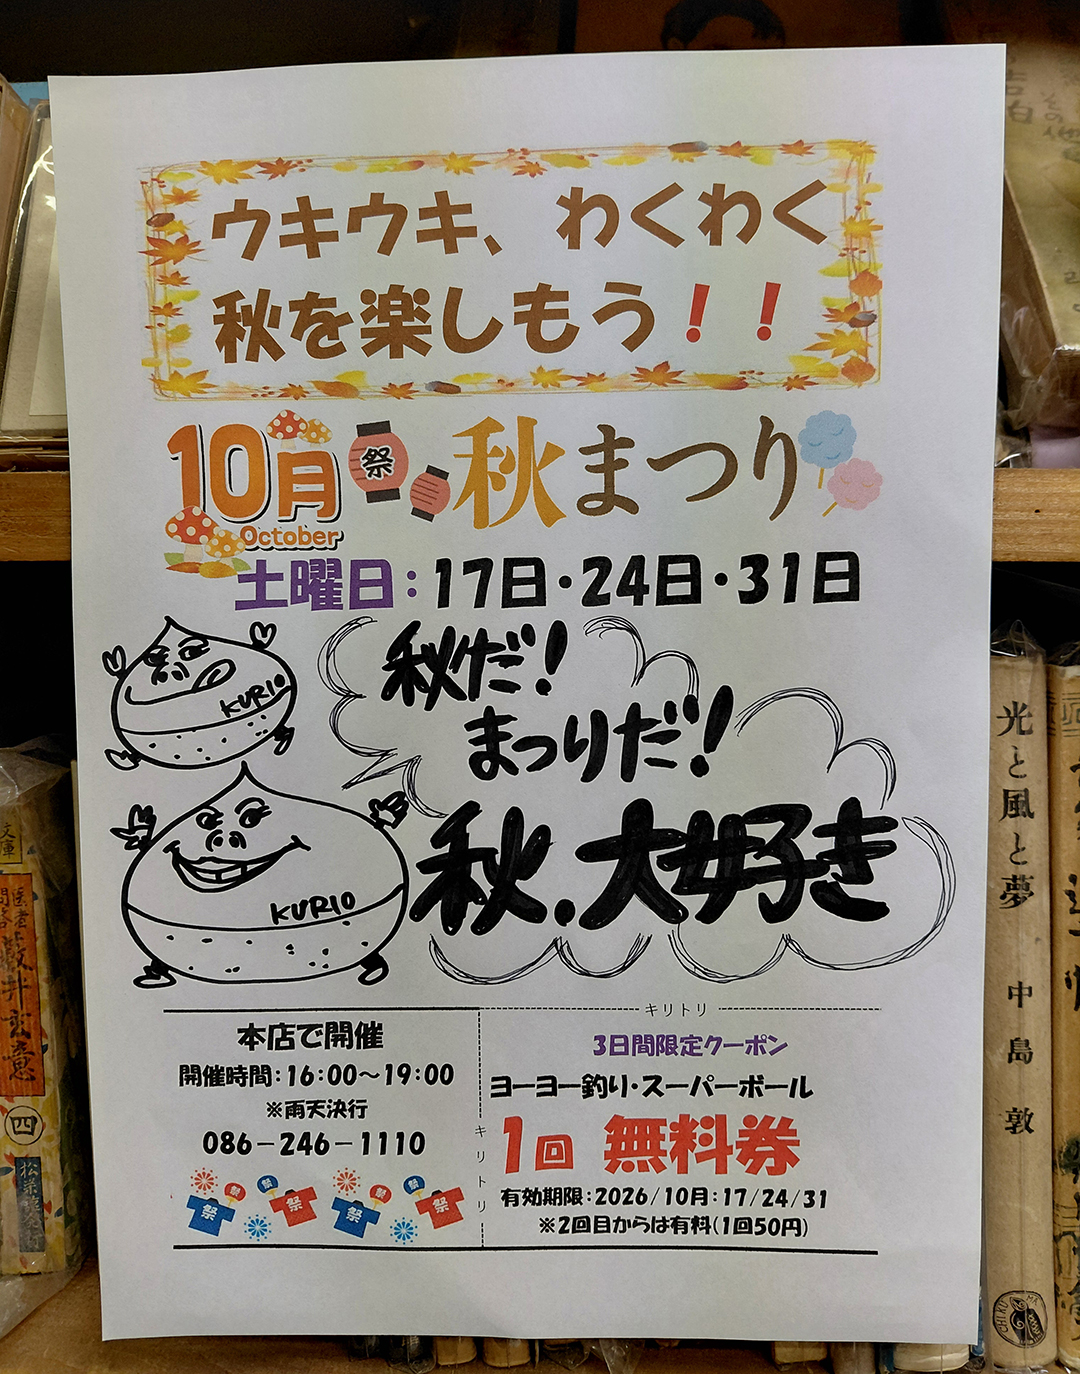 ウキウキ、わくわく
秋を楽しもう！！
10月
October
祭
秋まつり
土曜日：17日・24日・31日
秋だ！
まつりだ！
秋.大好き
KURIO
KURIO
本店で開催
開催時間：16：00～19：00
※雨天決行
086－246－1110
祭 祭 祭 祭 祭 祭 祭 祭
キリトリ
キリトリ
3日間限定クーポン
ヨーヨー釣り・スーパーボール
1回 無料券
有効期限：2026/10月：17/24/31
※2回目からは有料(1回50円)
光と風と夢 中島敦
文庫
医者
問答
藪井玄意
四